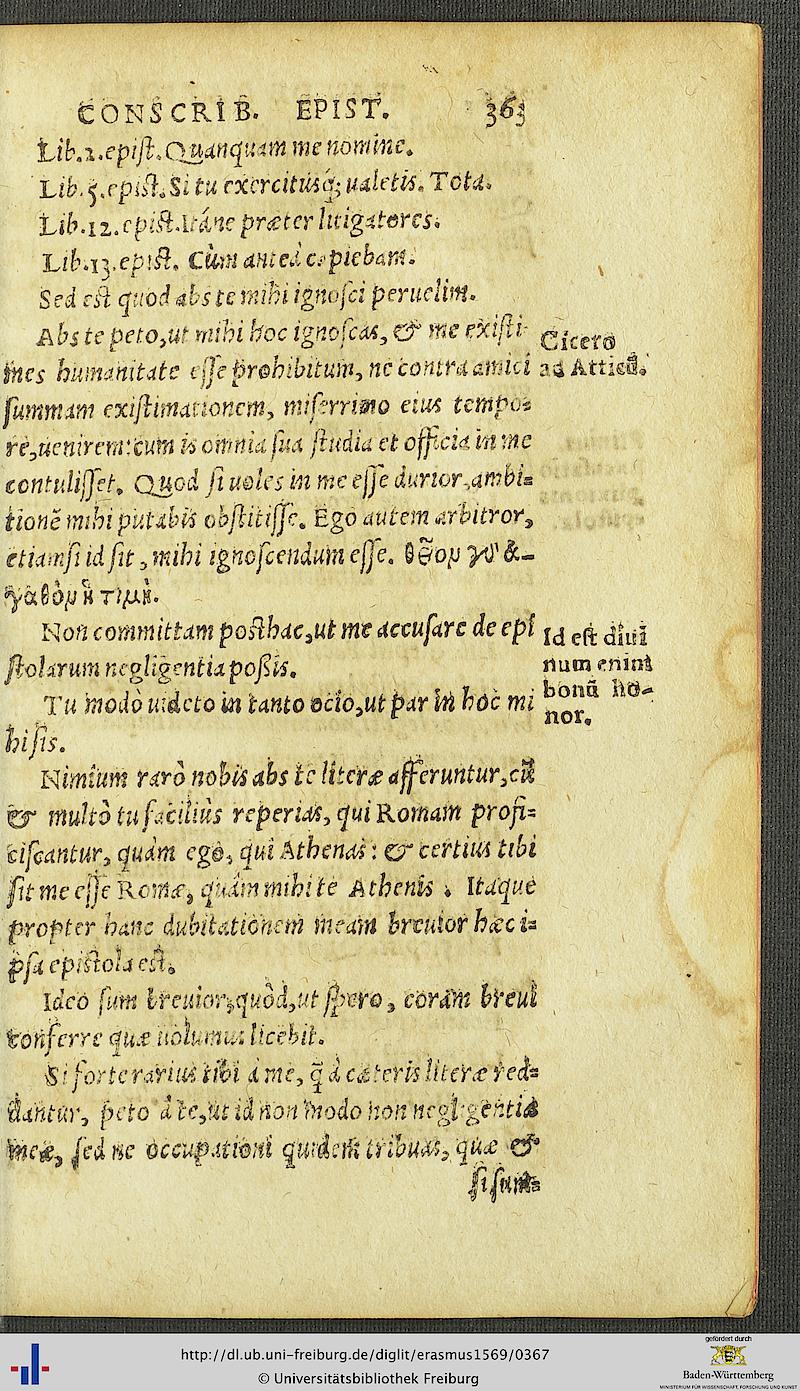 CONSCRIB. EPIST. 363
Lib.2.epiſt. Quanquam me nomine.
Lib.5.epiſt. Si tu exercitusq́; ualetis. Tota.
Lib.12.epiſt. Itáne præter litigatores.
Lib.13.epiſt. Cùm anteà capiebam.
Sed eſt quod abs te mihi ignoſci peruelim.
Abs te peto, ut mihi hoc ignoſcas, & me exiſti-
mes humanitate eſſe prohibitum, ne contra amici
ſummam exiſtimationem, miſerrimo eius tempo-
re, uenirem: cum is omnia ſua ſtudia et officia in me
contuliſſet. Quod ſi uoles in me eſſe durior, ambi-
tionẽ mihi putabis obſtitiſſe. Ego autem arbitror,
etiamſi id ſit, mihi ignoſcendum eſſe.
Cicero
ad Atticũ.
Non committam poſthac, ut me accuſare de epi
ſtolarum negligentia poßis.
Tu modò uideto in tanto ocio, ut par in hoc mi
hi ſis.
Id eſt diui
num enim
bonũ ho-
nor.
Nimium rarò nobis abs te literæ afferuntur, cũ
& multò tu faciliùs reperias, qui Romam profi-
ciſcantur, quàm ego, qui Athenas: & certius tibi
ſit me eſſe Romæ, quàm mihi te Athenis. Itaque
propter hanc dubitationem meam breuior hæc i-
pſa epiſtola eſt.
Ideo ſum breuior, quòd, ut ſpero, coràm breui
conferre quæ uolumus licebit.
Si forte rarius tibi à me, q̃ à cæteris literæ red-
dantur, peto à te, ut id non modo non negligentiæ
meæ, ſed ne occupationi quidem tribuas, quæ &
ſi ſum-
http://dl.ub.uni-freiburg.de/diglit/erasmus1569/0367
© Universitätsbibliothek Freiburg
gefördert durch
Baden-Württemberg
MINISTERIUM FÜR WISSENSCHAFT, FORSCHUNG UND KUNST